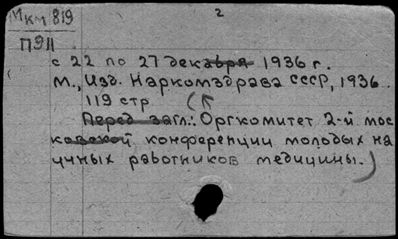 Мкм 819
П911
2
с 22 по 27 декабря 1936 г.
М., Изд. Наркомздрава СССР, 1936.
119 стр.
(Перед загл.: Оргкомитет 2-й мос
ковской конференции молодых на
учных работников медицины.)